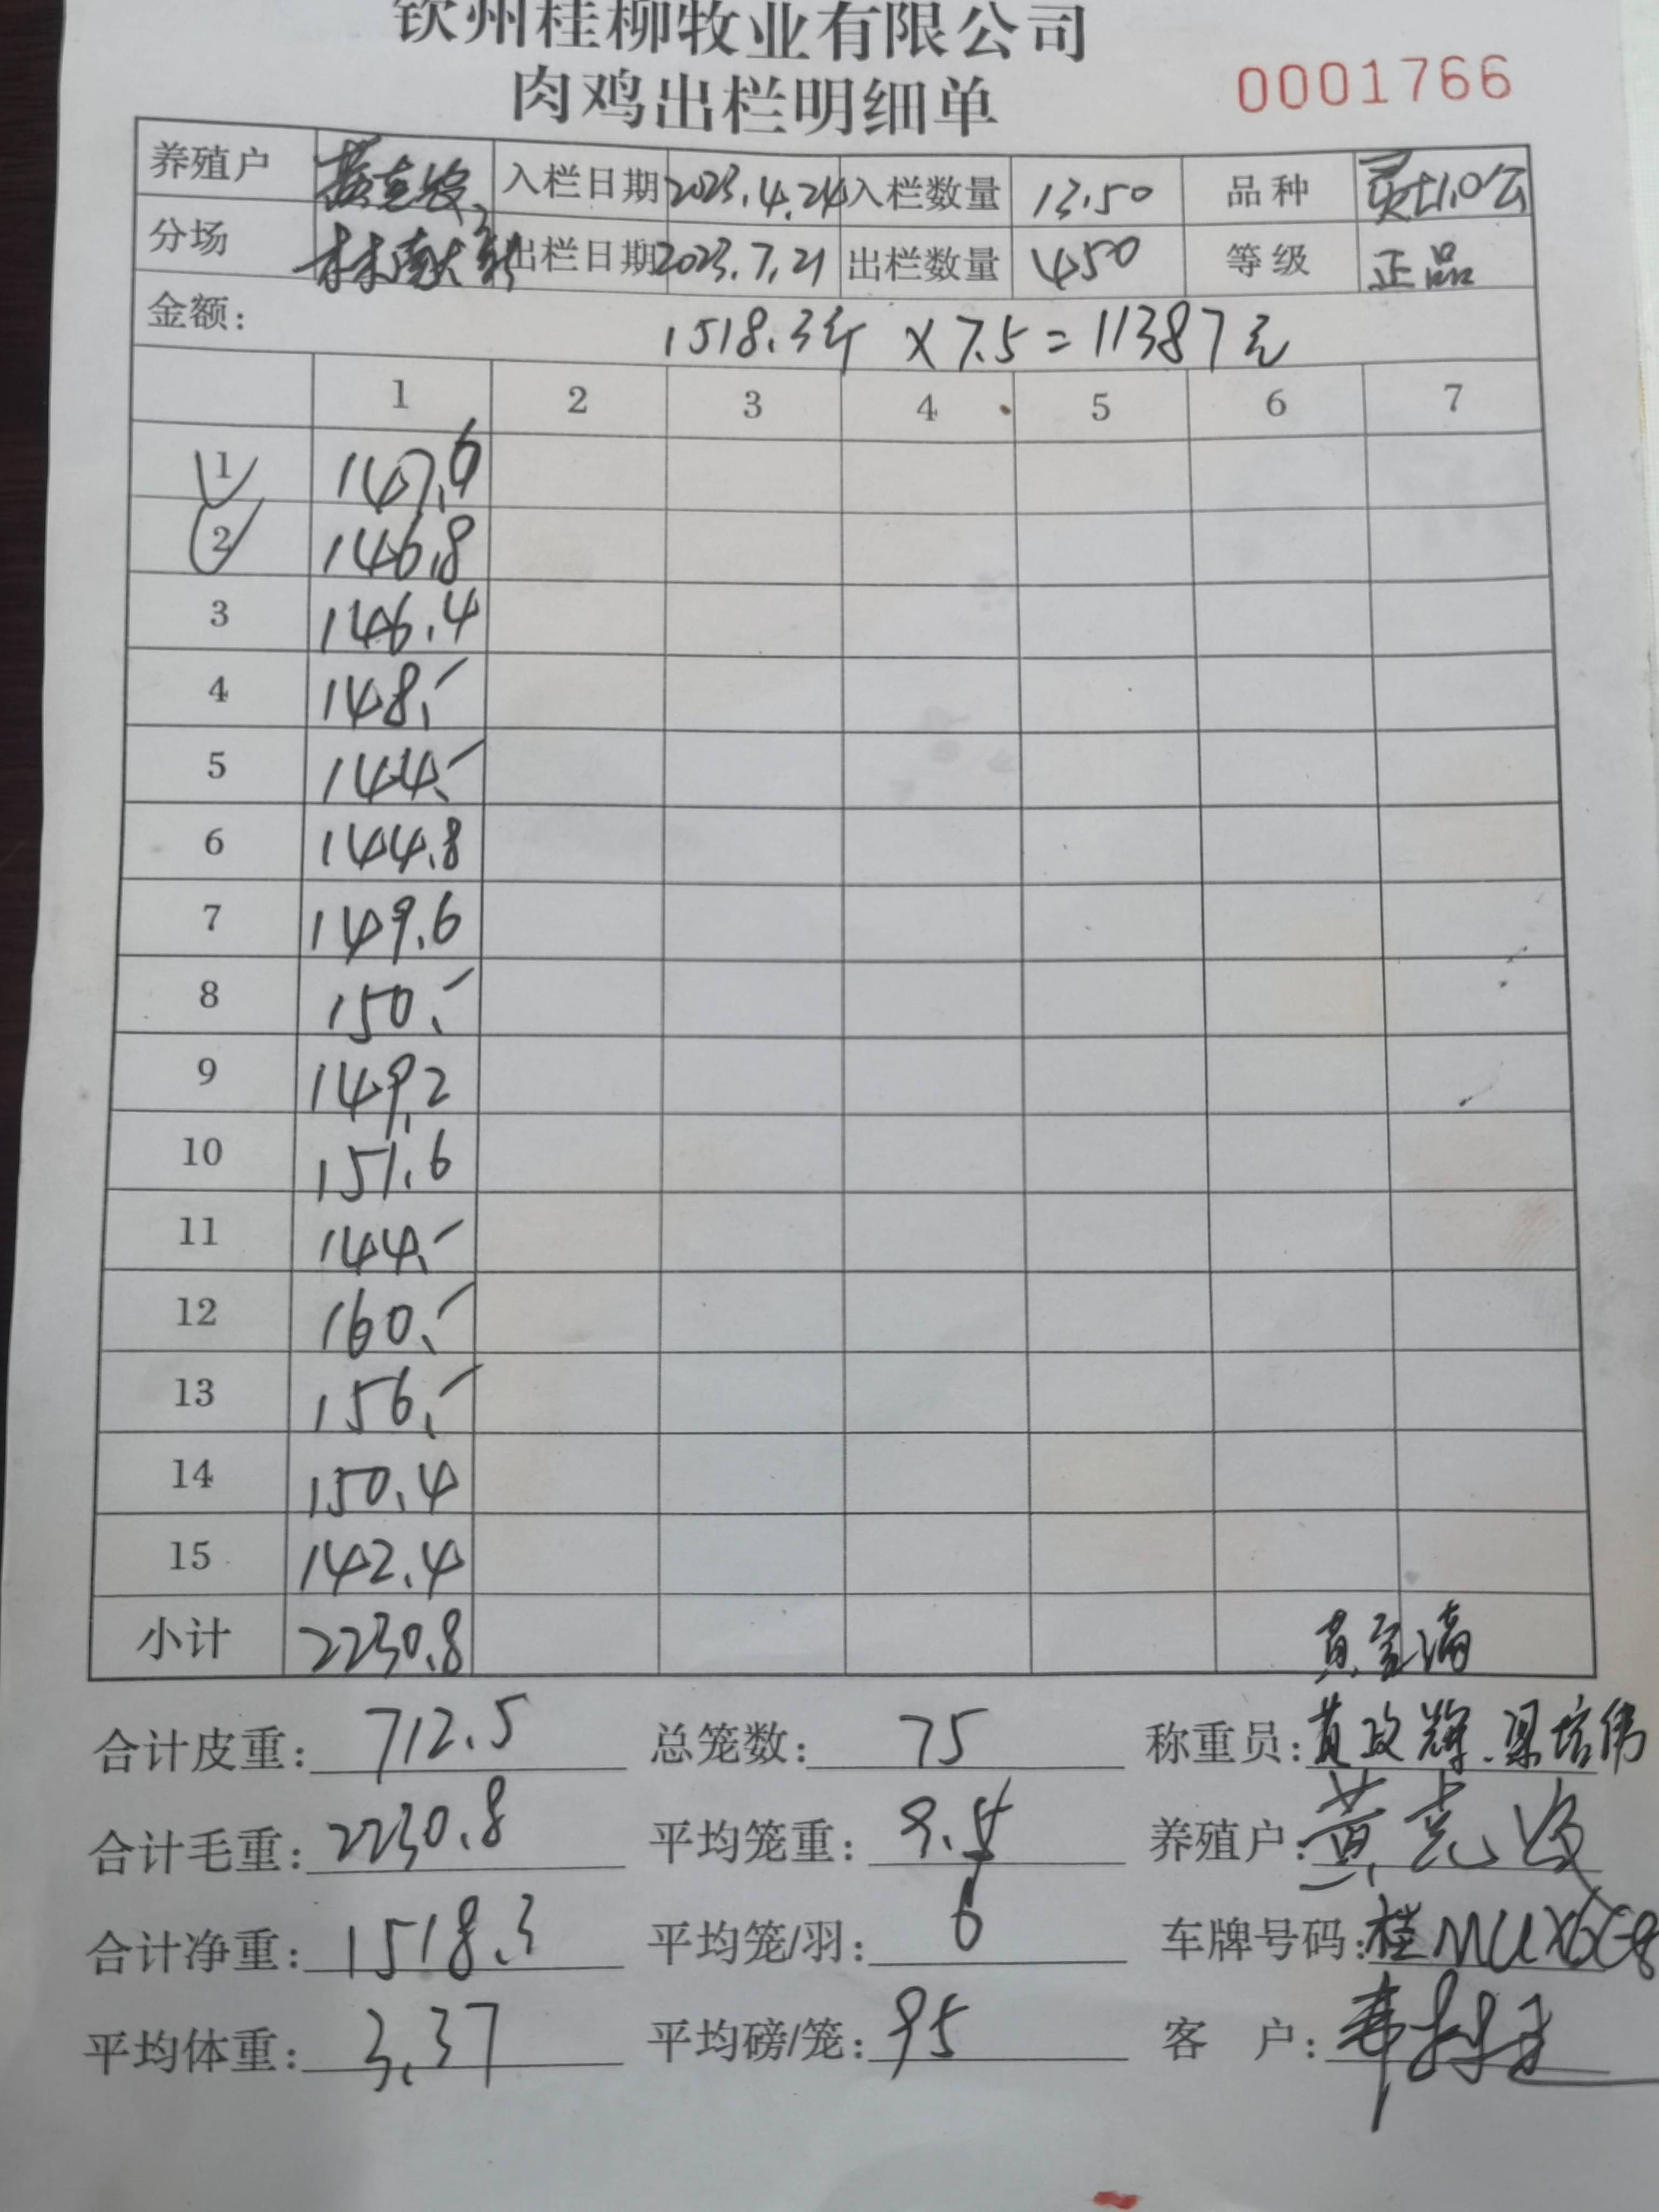 钦州桂柳牧业有限公司
肉鸡出栏明细单
0001766
养殖户 入栏日期 2023.4.24 入栏数量 1350 品种
分场 出栏日期 2023.7.21 出栏数量 450 等级 正品
金额: 1518.3斤 × 7.5 = 11387元
1 2 3 4 5 6 7
1 147.6
2 146.8
3 146.4
4 148.-
5 144.-
6 144.8
7 149.6
8 150.-
9 149.2
10 151.6
11 144.-
12 160.-
13 156.-
14 150.4
15 142.4
小计 2230.8
合计皮重: 712.5 总笼数: 75 称重员: 黄政辉.梁培伟
合计毛重: 2230.8 平均笼重: 9.5 养殖户:
合计净重: 1518.3 平均笼/羽: 6 车牌号码:
平均体重: 3.37 平均磅/笼: 95 客 户: